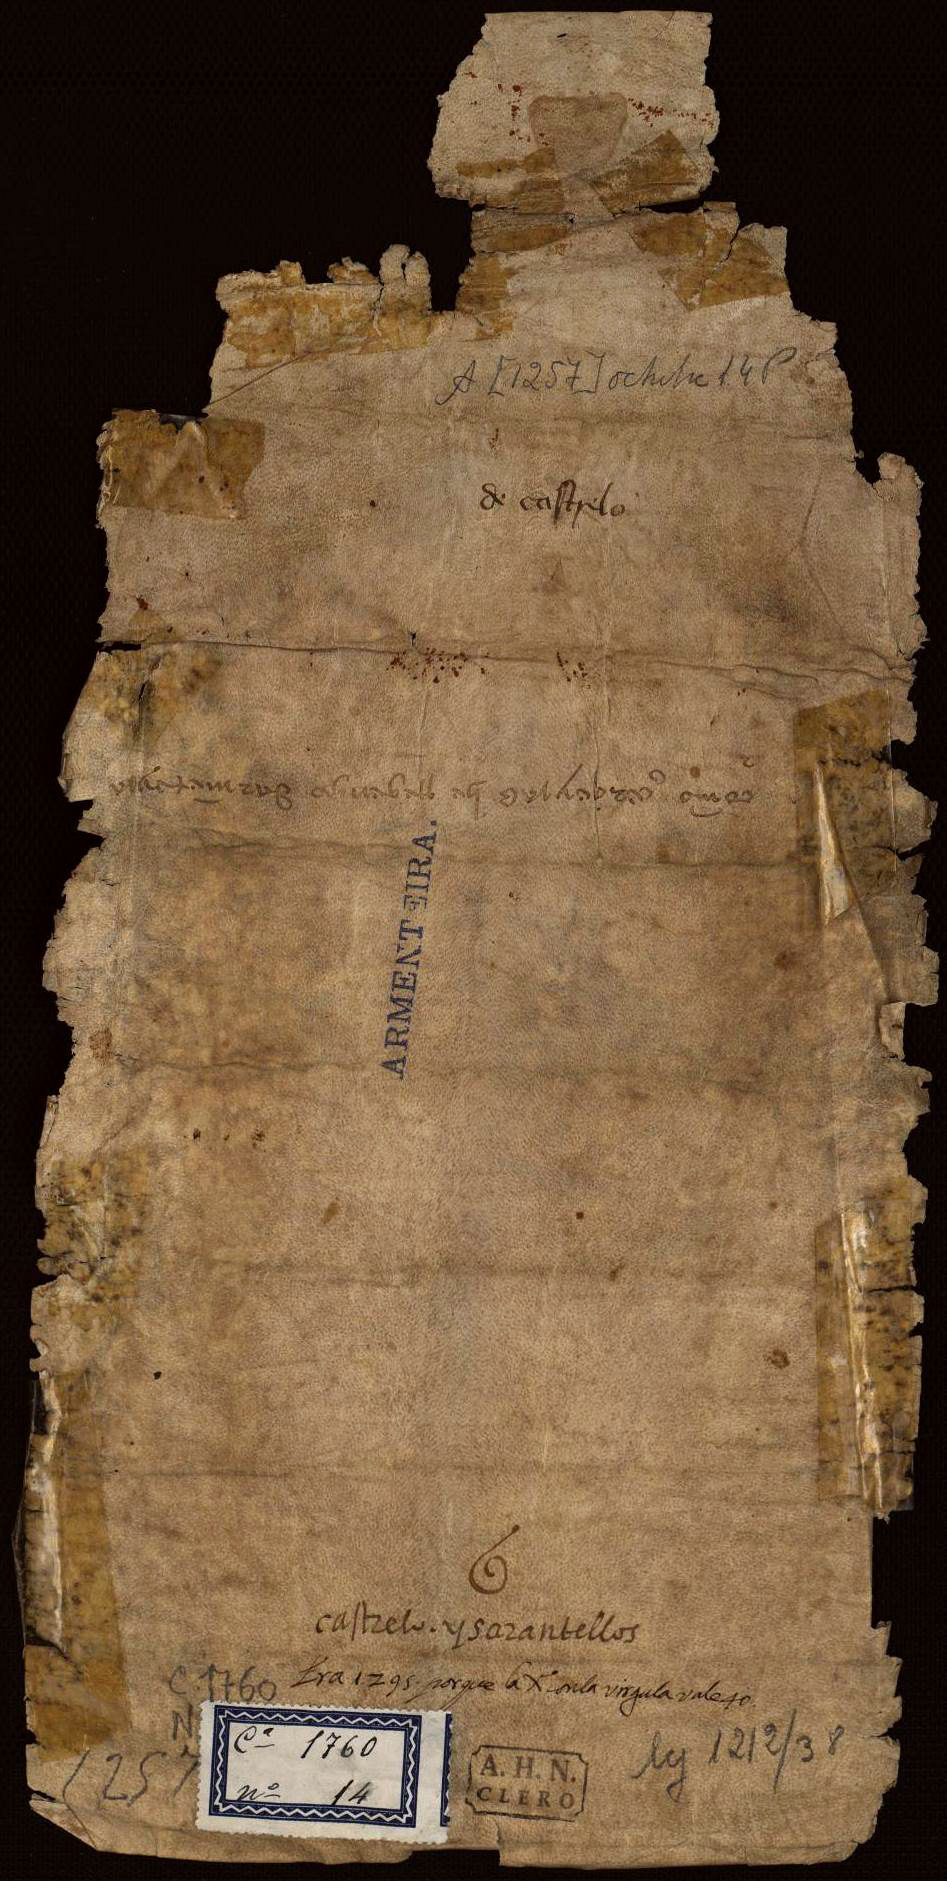 A [1257] octubre 14 P
de castrelo
ARMENTEIRA.
6
castrelo. y sarantellos
Era 1295. porque la X con la virgula vale 40.
C. 1760
N
(257
Cª 1760
nº 14
A. H. N.
CLERO
leg 1212/38